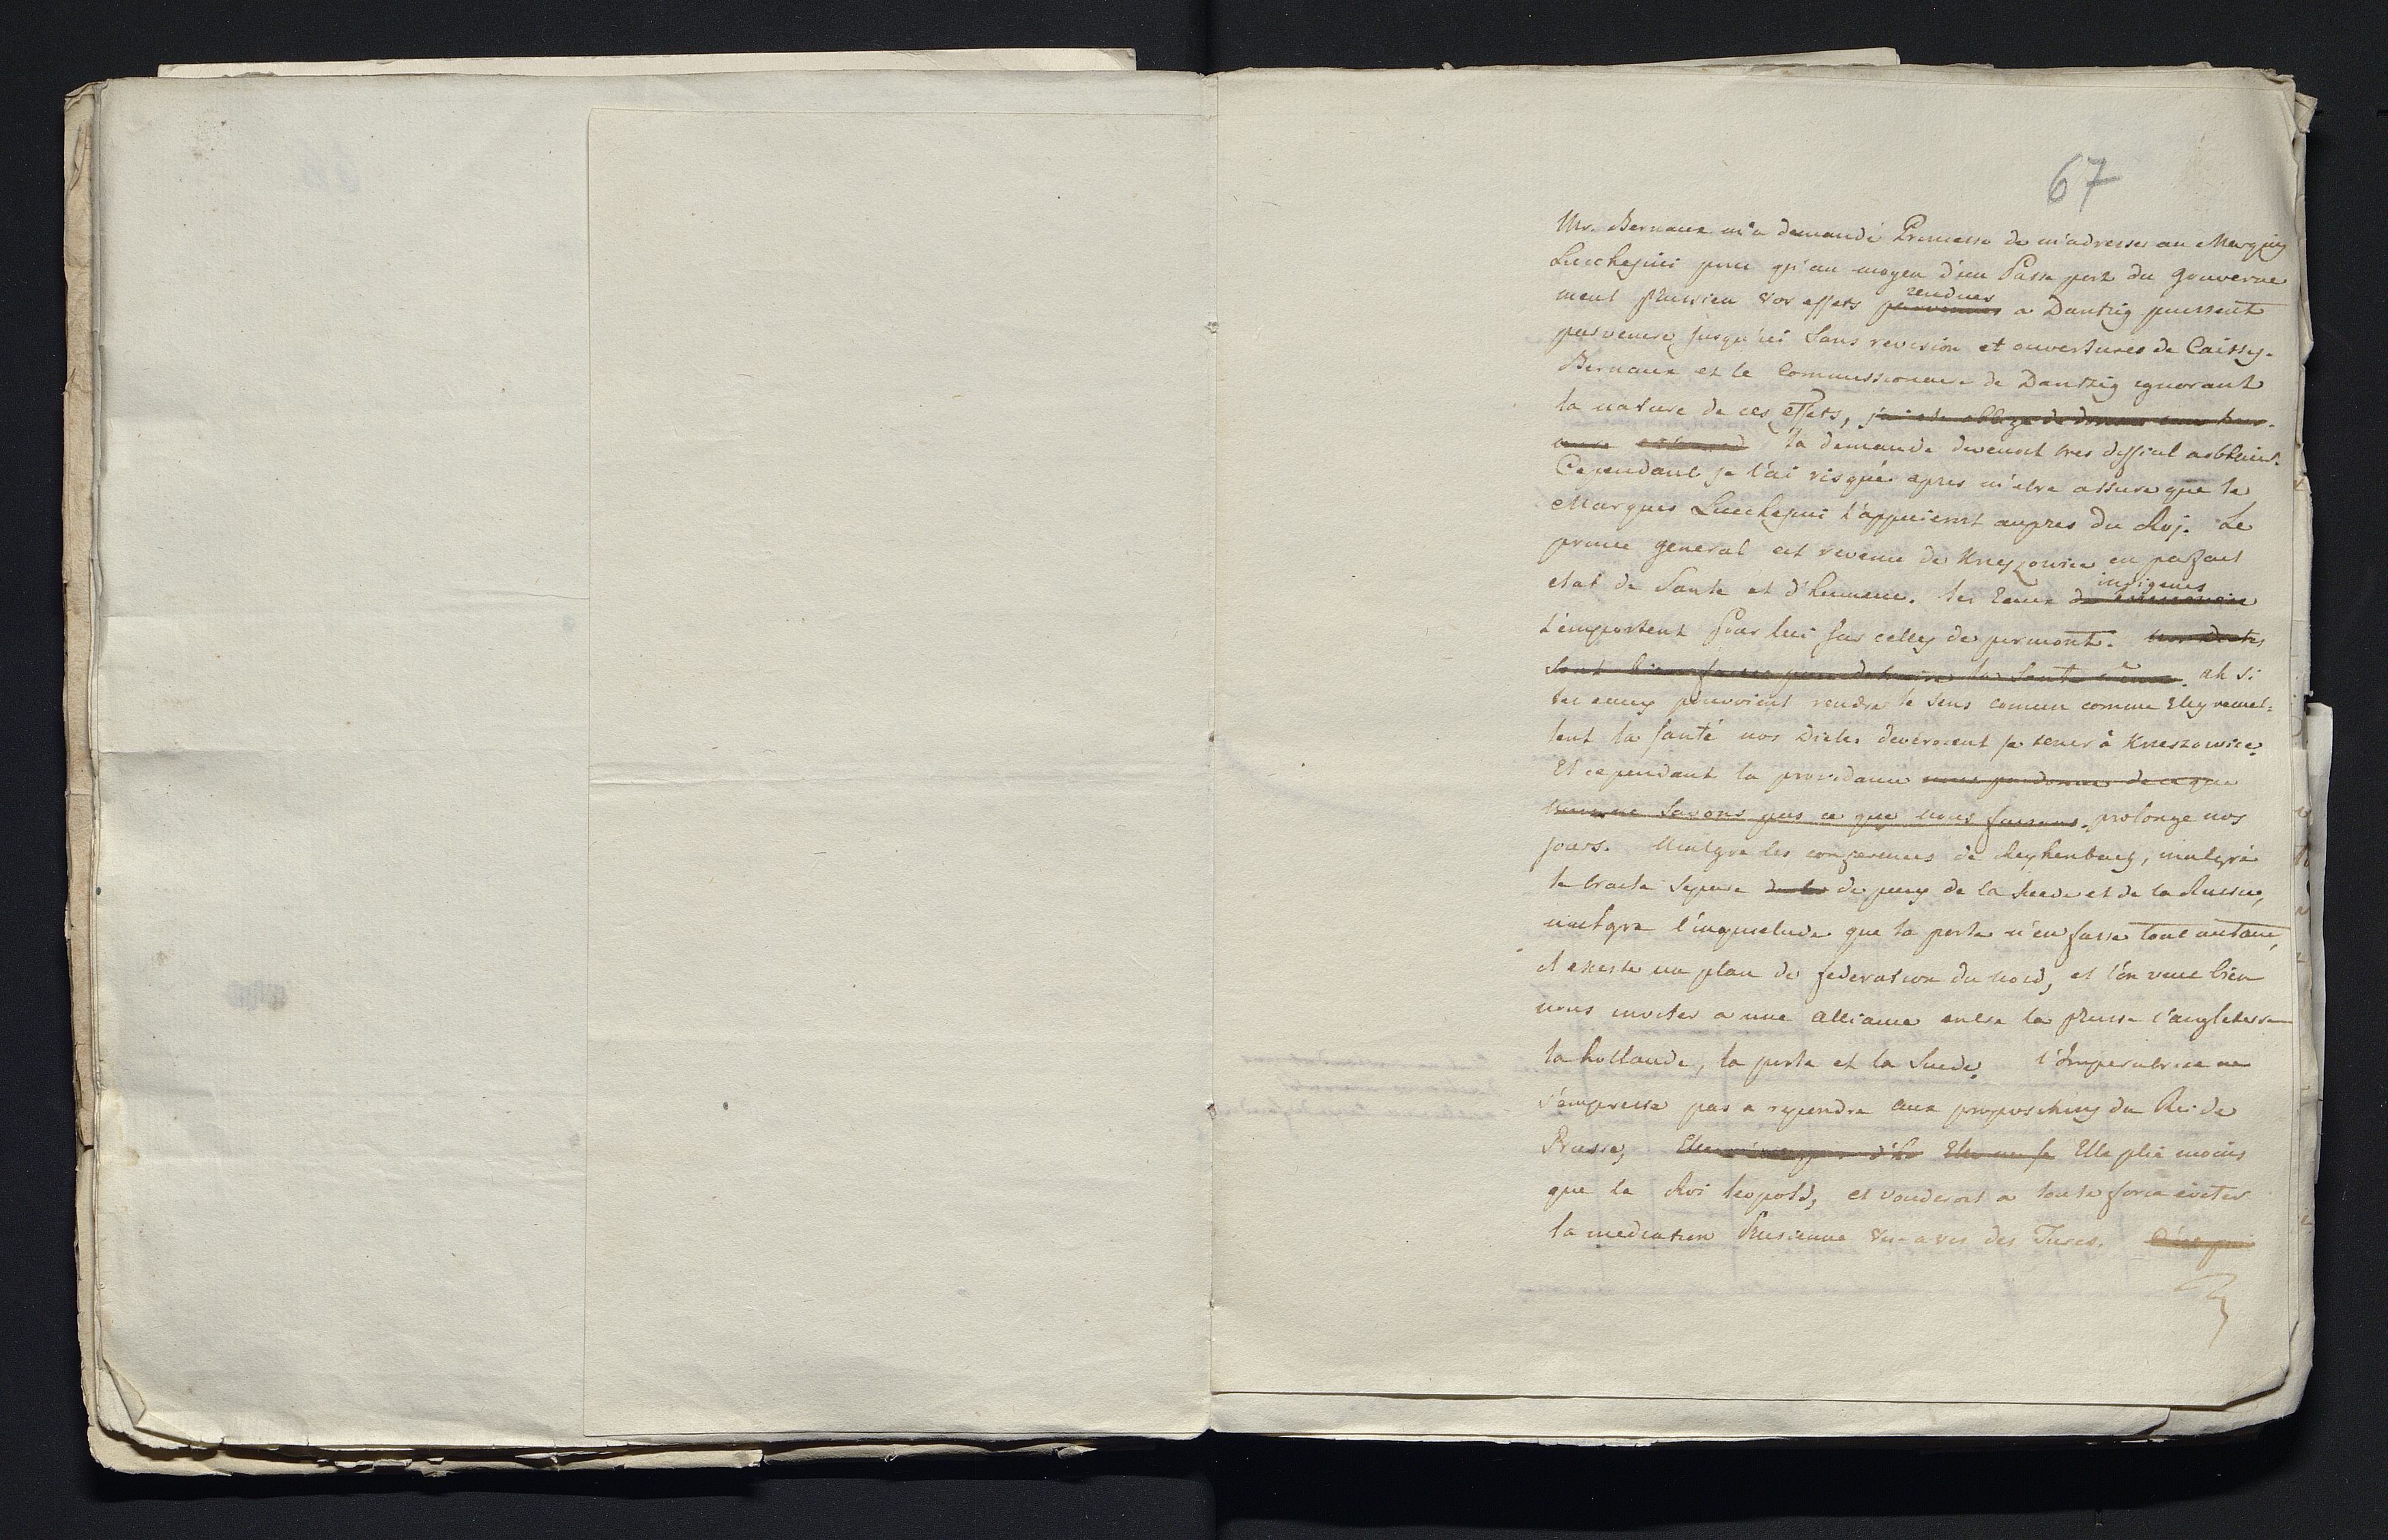 67
Mr. Bernaux m'a demandé Princesse de m'adresser au Marquis
Lucchesini pour qu'au moyen d'un Passe port du Gouverne
ment prussien vos effets rendues a Dantzig puissent
parvenire jusqu'ici sans revision et ouvertures de Caisses.
Bernaux et le Commissionaire de Dantzig ignorant
la nature de ces effets, j'ai ete oblige de donner
la demande devenoit tres difficil a obtenir.
Cependant je l'ai risqué apres m'etre assure que le
Marquis Lucchesini l'appuieroit aupres du Roj. Le
prince general est revenu de Kneszowice en parfait
etat de Sante et d'humeur. les Eaux indigenes
l'emportent pour lui sur celles de pirmont. nos Dietes
sont bien faites pour detruire la Santé même. ah si
les eaux pouvoient rendre le sens comun comme Elles remet-
tent la santé nos Dietes deveroient se tenir à Kneszowice.
Et cependant la providance nous pardonne de ce que
nous ne savons pas ce que nous faisons. prolonge nos
jours. Malgre les conferences de Reychenbach, malgré
le traité separe de la de paix de la Suede et de la Russie,
malgre l'inquietude que la porte n'en fasse tout autant,
il existe un plan de federation du nord, et l'on veut bien
nous inviter a une alliance entre la prusse l'angleterre
la hollande, la porte et la Suede. l'Imperatrice ne
s'empresse pas a repondre aux propositions du Roi de
Prusse, Elle ne se Elle plie moins
que le Roi leopold, et vouderoit a toute force eviter
la mediation Prusienne vis-a vis des Turcs.